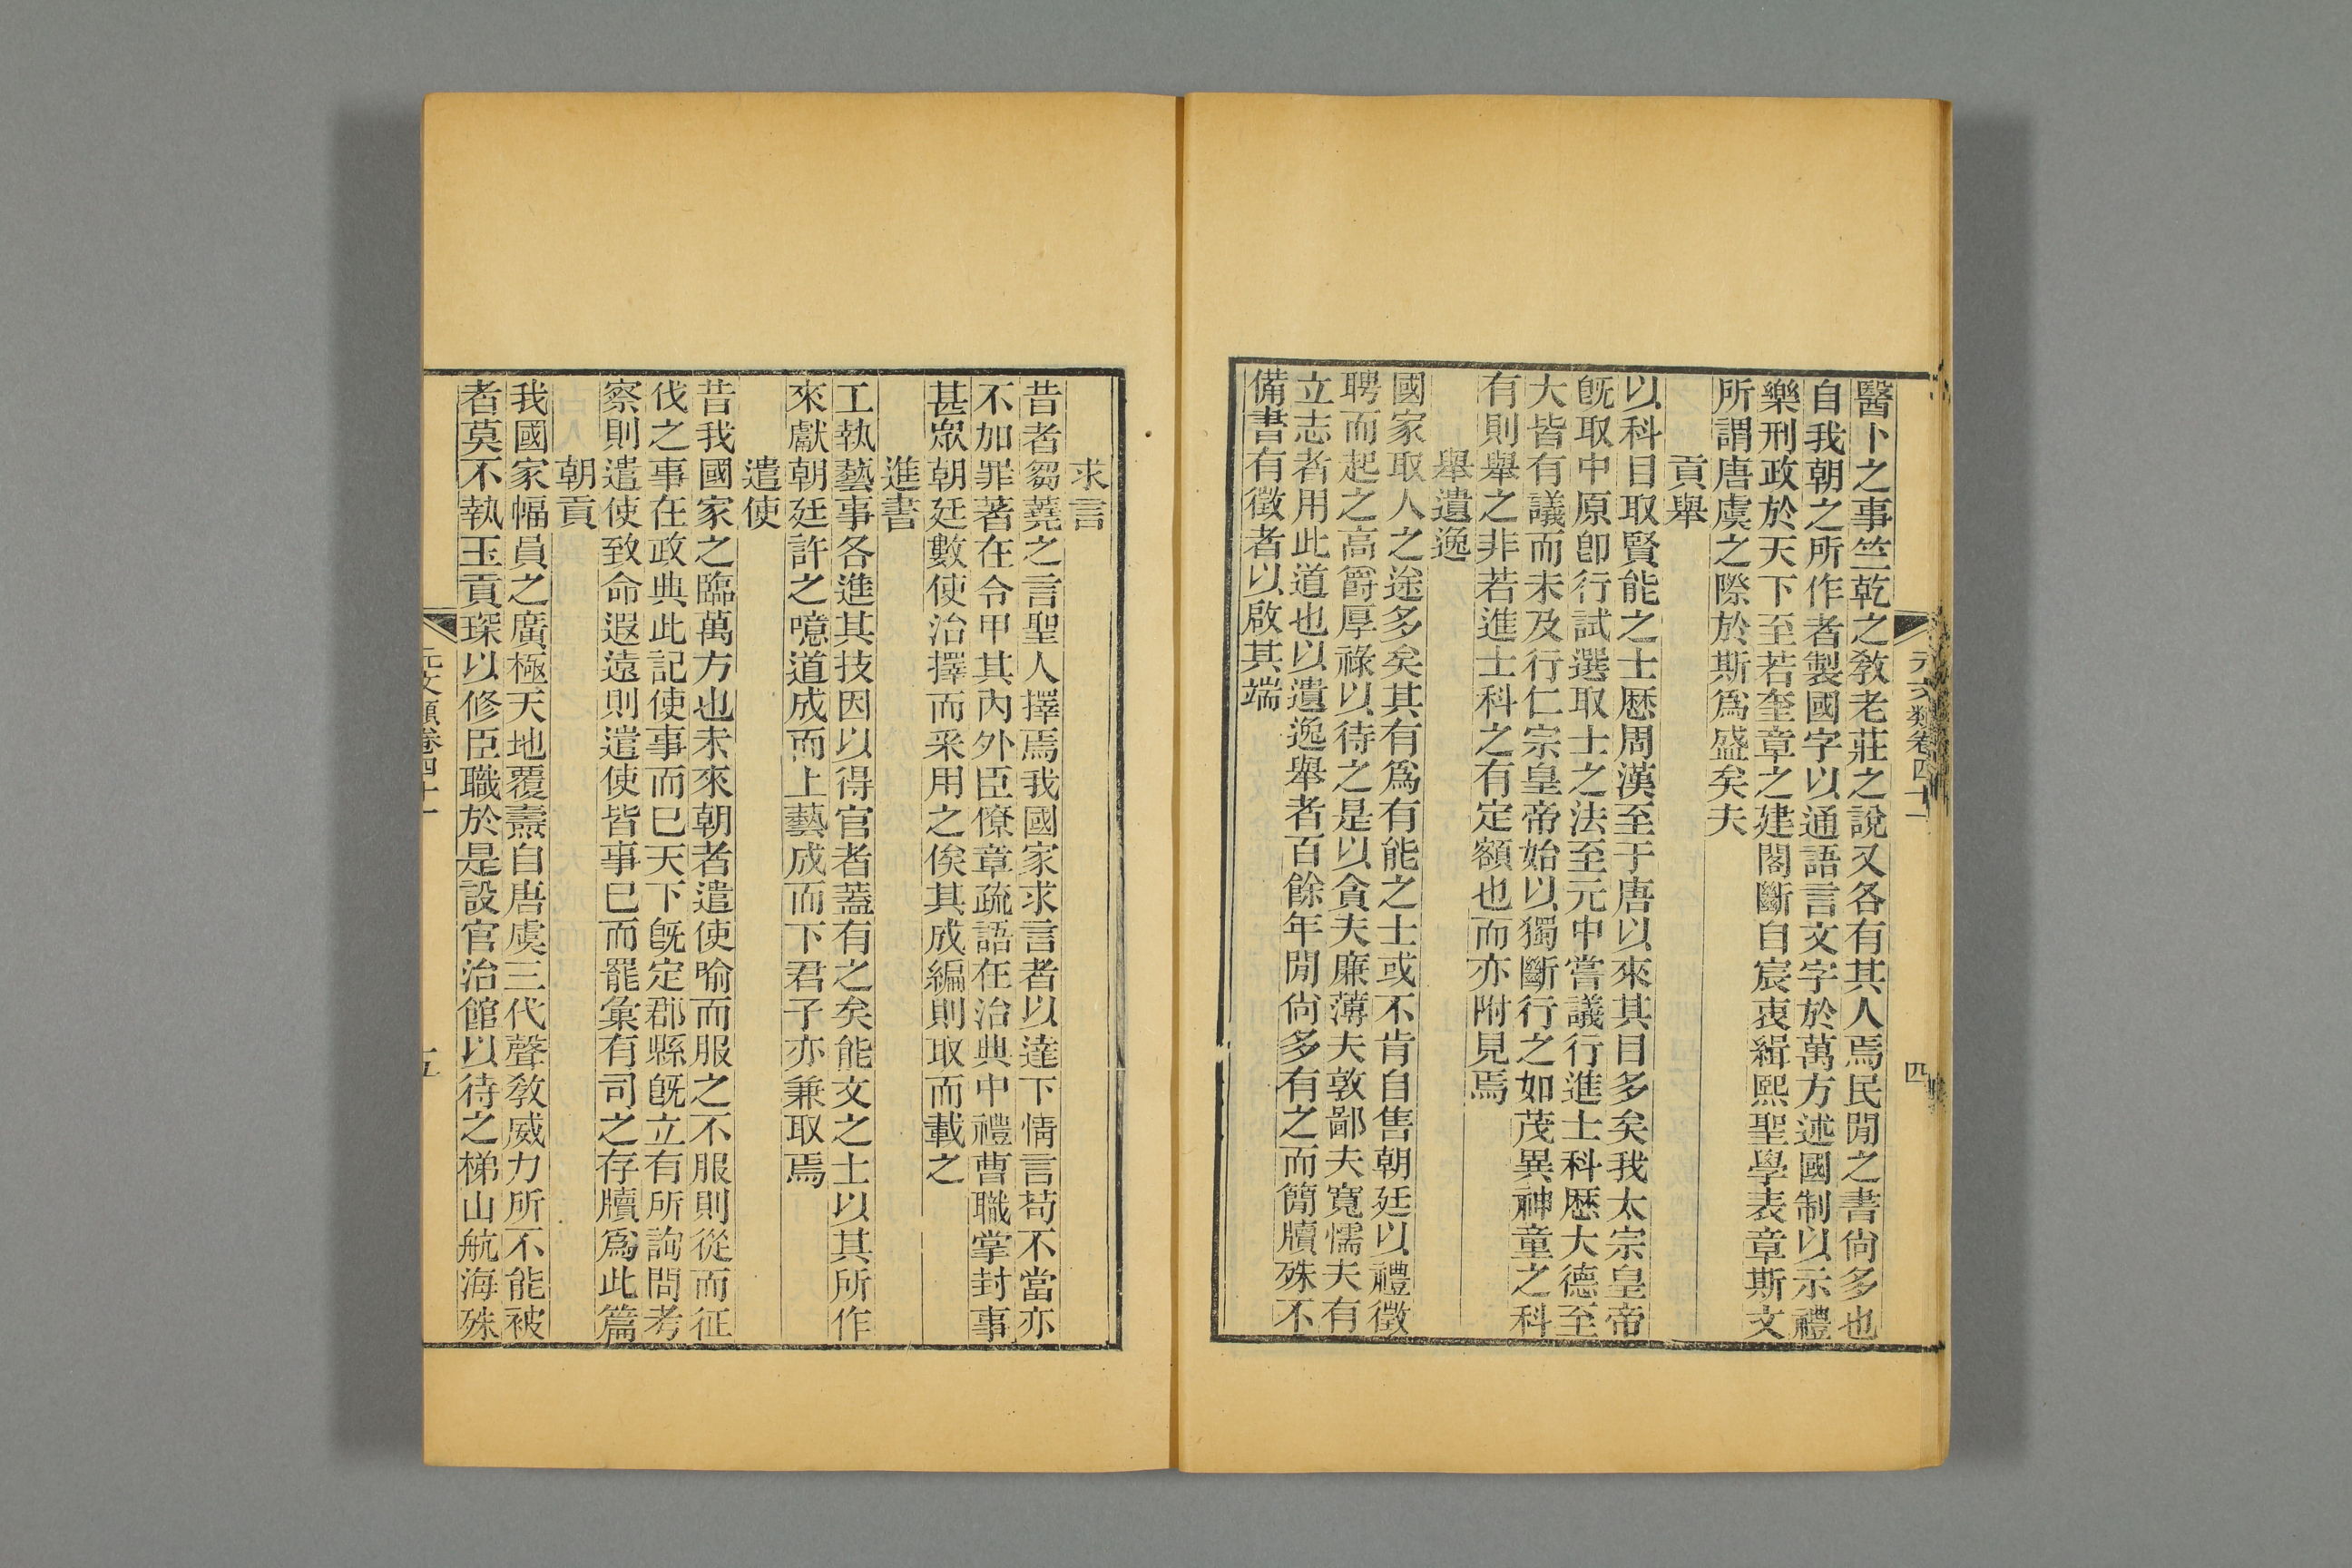 元文類卷四十一
四
醫卜之事竺乾之敎老莊之說又各有其人焉民閒之書尙多也
自我朝之所作者製國字以通語言文字於萬方述國制以示禮
樂刑政於天下至若奎章之建閣斷自宸衷緝熙聖學表章斯文
所謂唐虞之際於斯爲盛矣夫
貢舉
以科目取賢能之士歷周漢至于唐以來其目多矣我太宗皇帝
旣取中原卽行試選取士之法至元中嘗議行進士科歷大德至
大皆有議而未及行仁宗皇帝始以獨斷行之如茂異神童之科
有則舉之非若進士科之有定額也而亦附見焉
舉遺逸
國家取人之途多矣其有爲有能之士或不肯自售朝廷以禮徵
聘而起之高爵厚祿以待之是以貪夫廉薄夫敦鄙夫寬懦夫有
立志者用此道也以遺逸舉者百餘年閒尙多有之而簡牘殊不
備書有徵者以啟其端
求言
昔者芻蕘之言聖人擇焉我國家求言者以達下情言苟不當亦
不加罪著在令甲其內外臣僚章疏語在治典中禮曹職掌封事
甚衆朝廷數使治擇而采用之俟其成編則取而載之
進書
工執藝事各進其技因以得官者蓋有之矣能文之士以其所作
來獻朝廷許之噫道成而上藝成而下君子亦兼取焉
遣使
昔我國家之臨萬方也未來朝者遣使喻而服之不服則從而征
伐之事在政典此記使事而已天下旣定郡縣旣立有所詢問考
察則遣使致命遐遠則遣使皆事已而罷彙有司之存牘爲此篇
朝貢
我國家幅員之廣極天地覆燾自唐虞三代聲敎威力所不能被
者莫不執玉貢琛以修臣職於是設官治館以待之梯山航海殊
元文類卷四十一
五